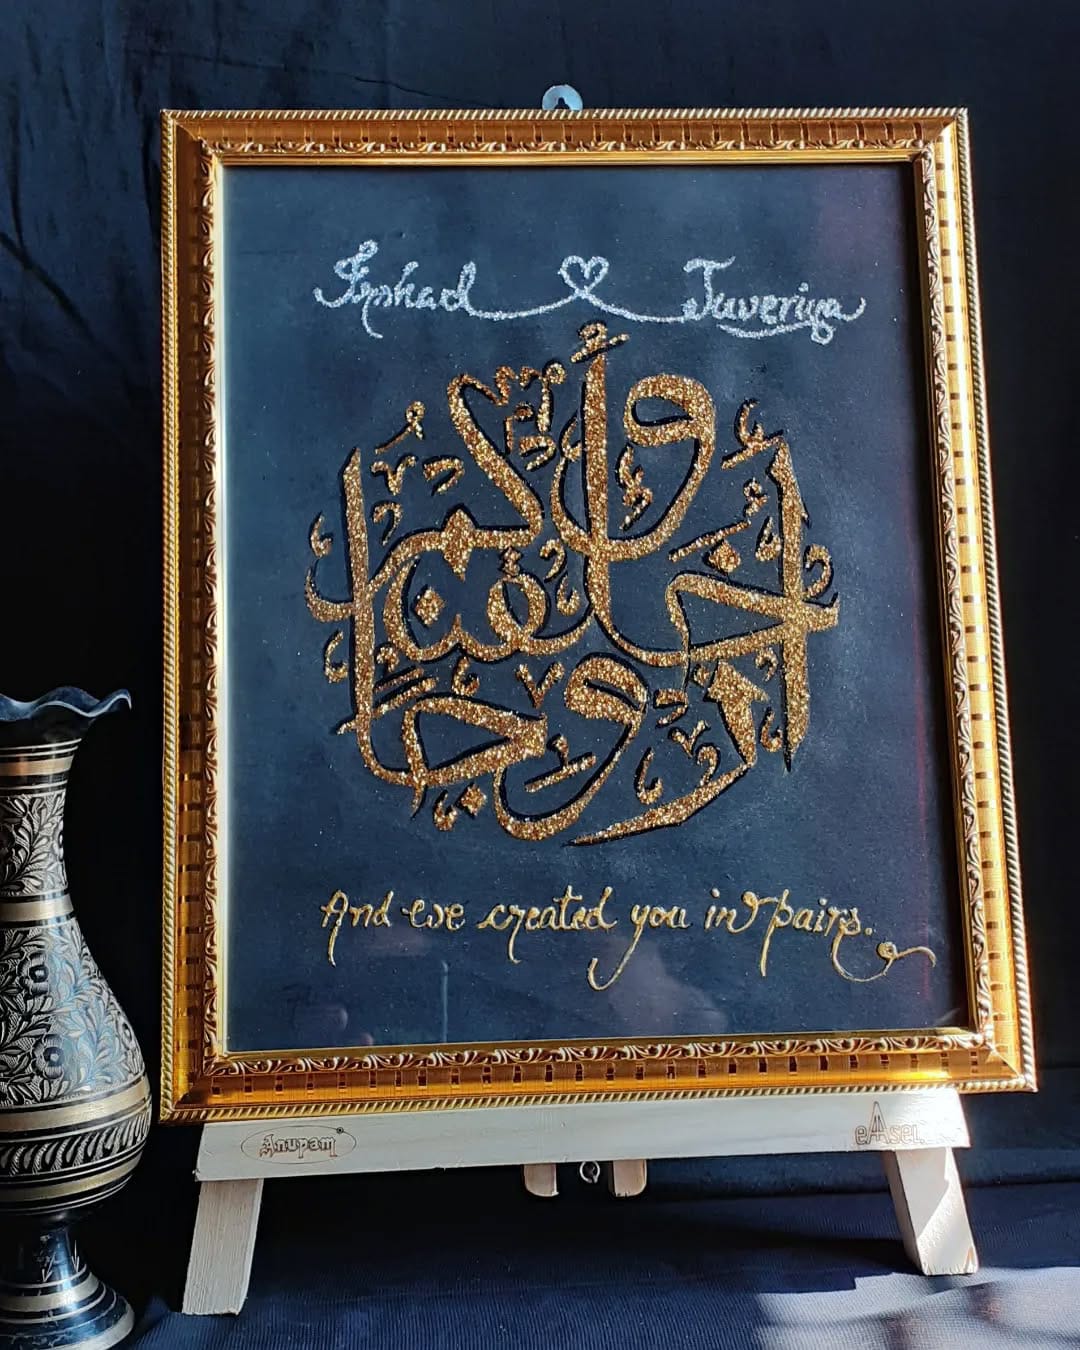 Irshad ♡ Juveriya
وَخَلَقْنَاكُمْ أَزْوَاجًا
And we created you in pairs.
Anupam
eAsel